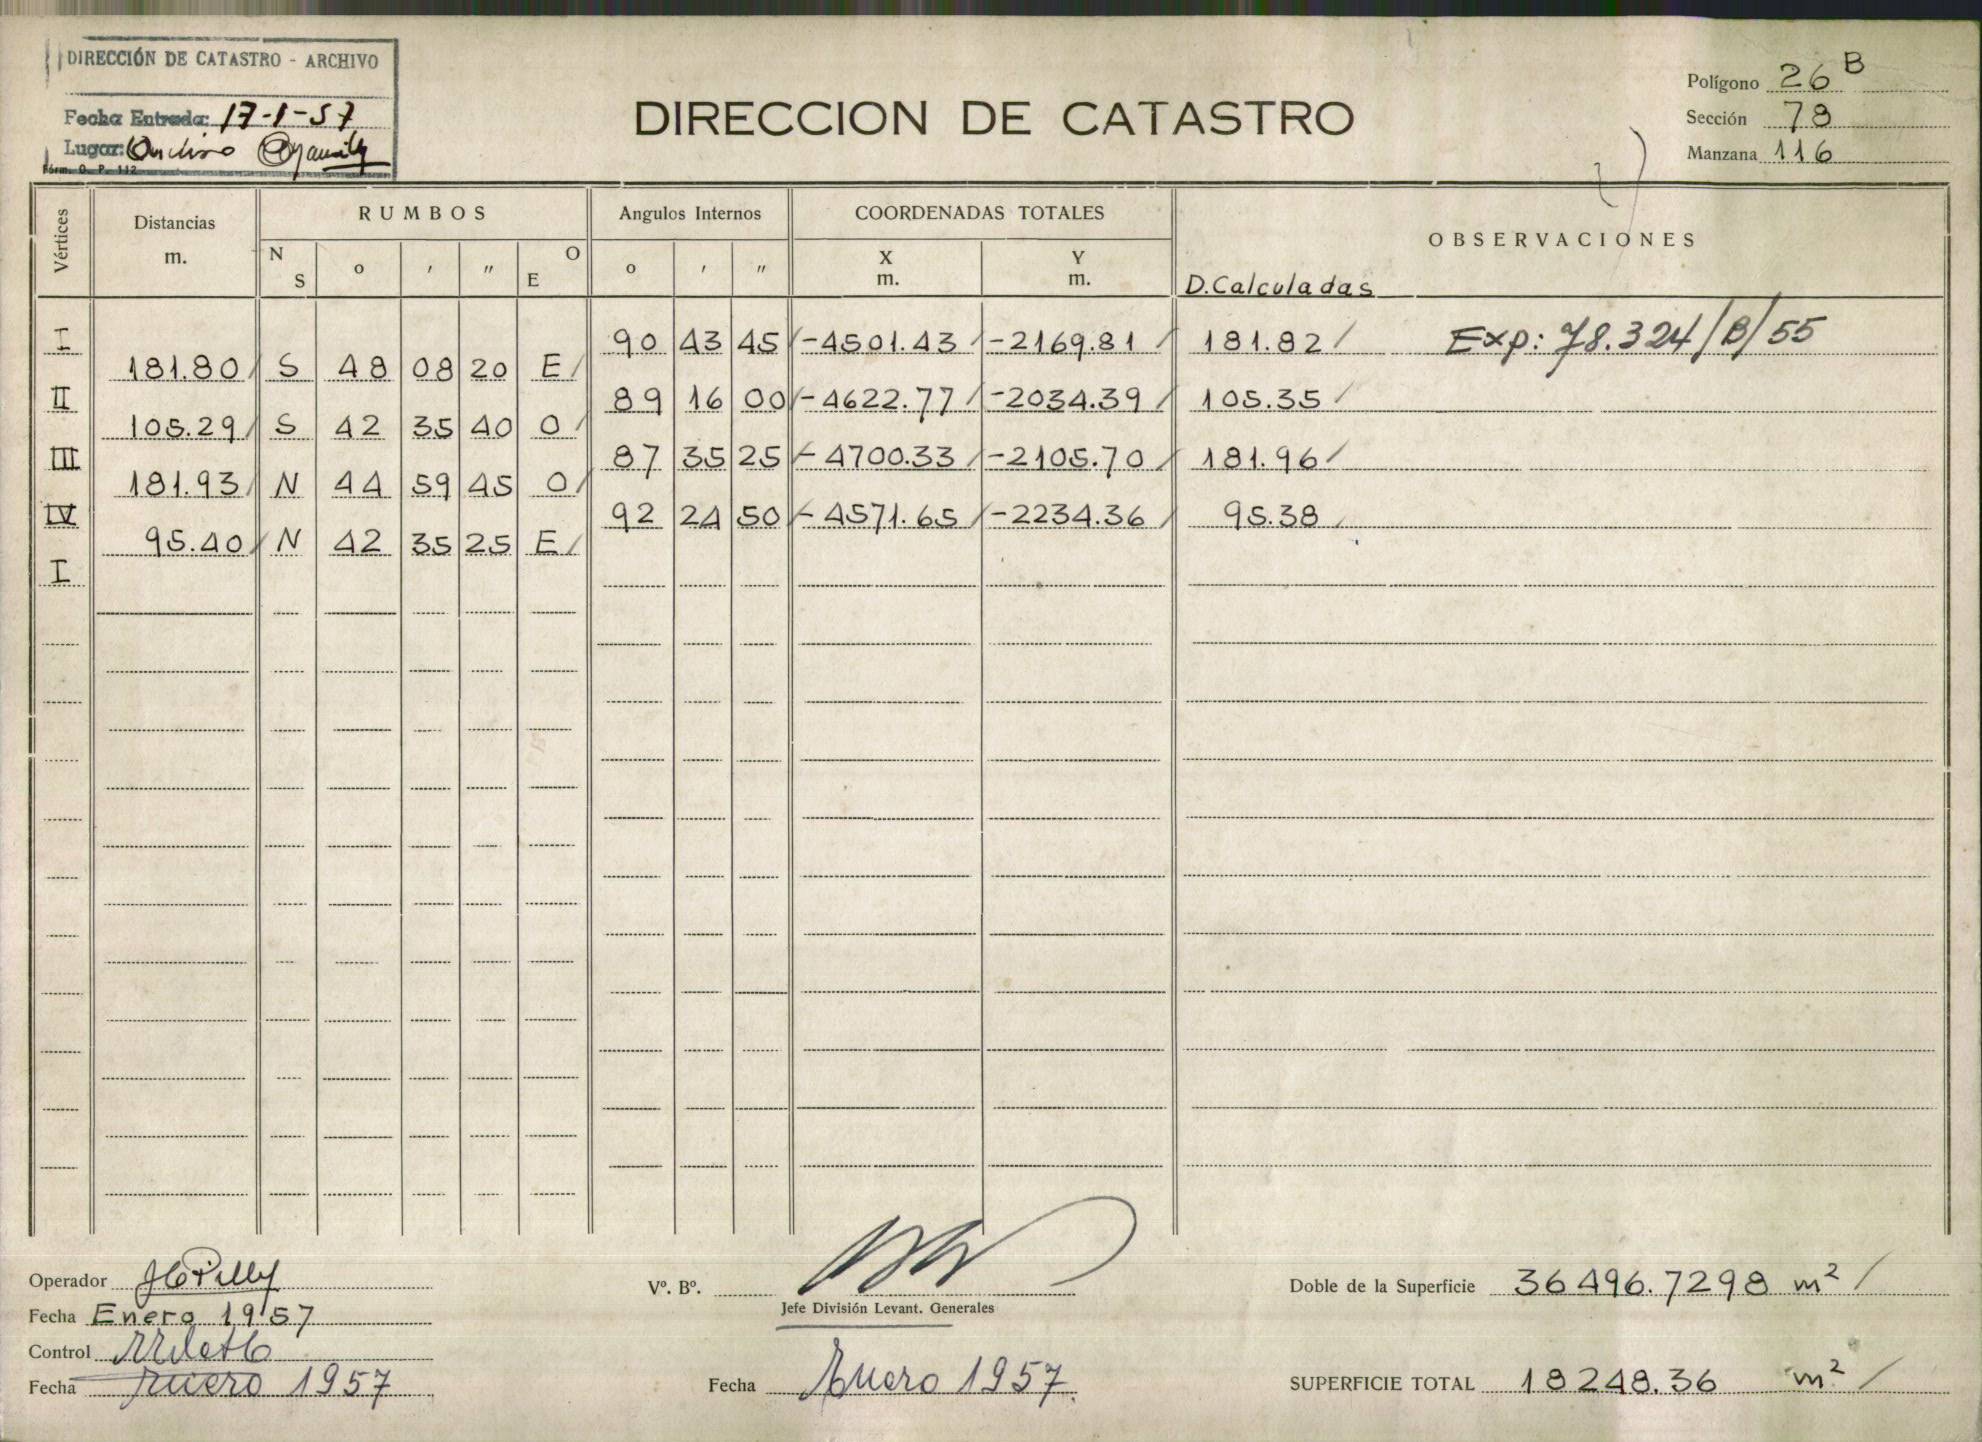 DIRECCIÓN DE CATASTRO - ARCHIVO
Fecha Entrada: 17-1-57
Lugar: Archivo
Fórm. O. P. 112
DIRECCION DE CATASTRO
Polígono 26 B
Sección 78
Manzana 116
Vértices
Distancias
m.
RUMBOS
N S ° ' " O E
Angulos Internos
° ' "
COORDENADAS TOTALES
X m.
Y m.
OBSERVACIONES
D. Calculadas
I 90 43 45 / -4501.43 / -2169.81 / 181.82 / Exp: 78.324/B/55
181.80 / S 48 08 20 E /
II 89 16 00 / -4622.77 / -2034.39 / 105.35 /
105.29 / S 42 35 40 O /
III 87 35 25 / -4700.33 / -2105.70 / 181.96 /
181.93 / N 44 59 45 O /
IV 92 24 50 / -4571.65 / -2234.36 / 95.38 /
95.40 / N 42 35 25 E /
I
Operador
Fecha Enero 1957
Control
Fecha Enero 1957
Vº. Bº.
Jefe División Levant. Generales
Fecha Enero 1957.
Doble de la Superficie 36496.7298 m² /
SUPERFICIE TOTAL 18248.36 m² /